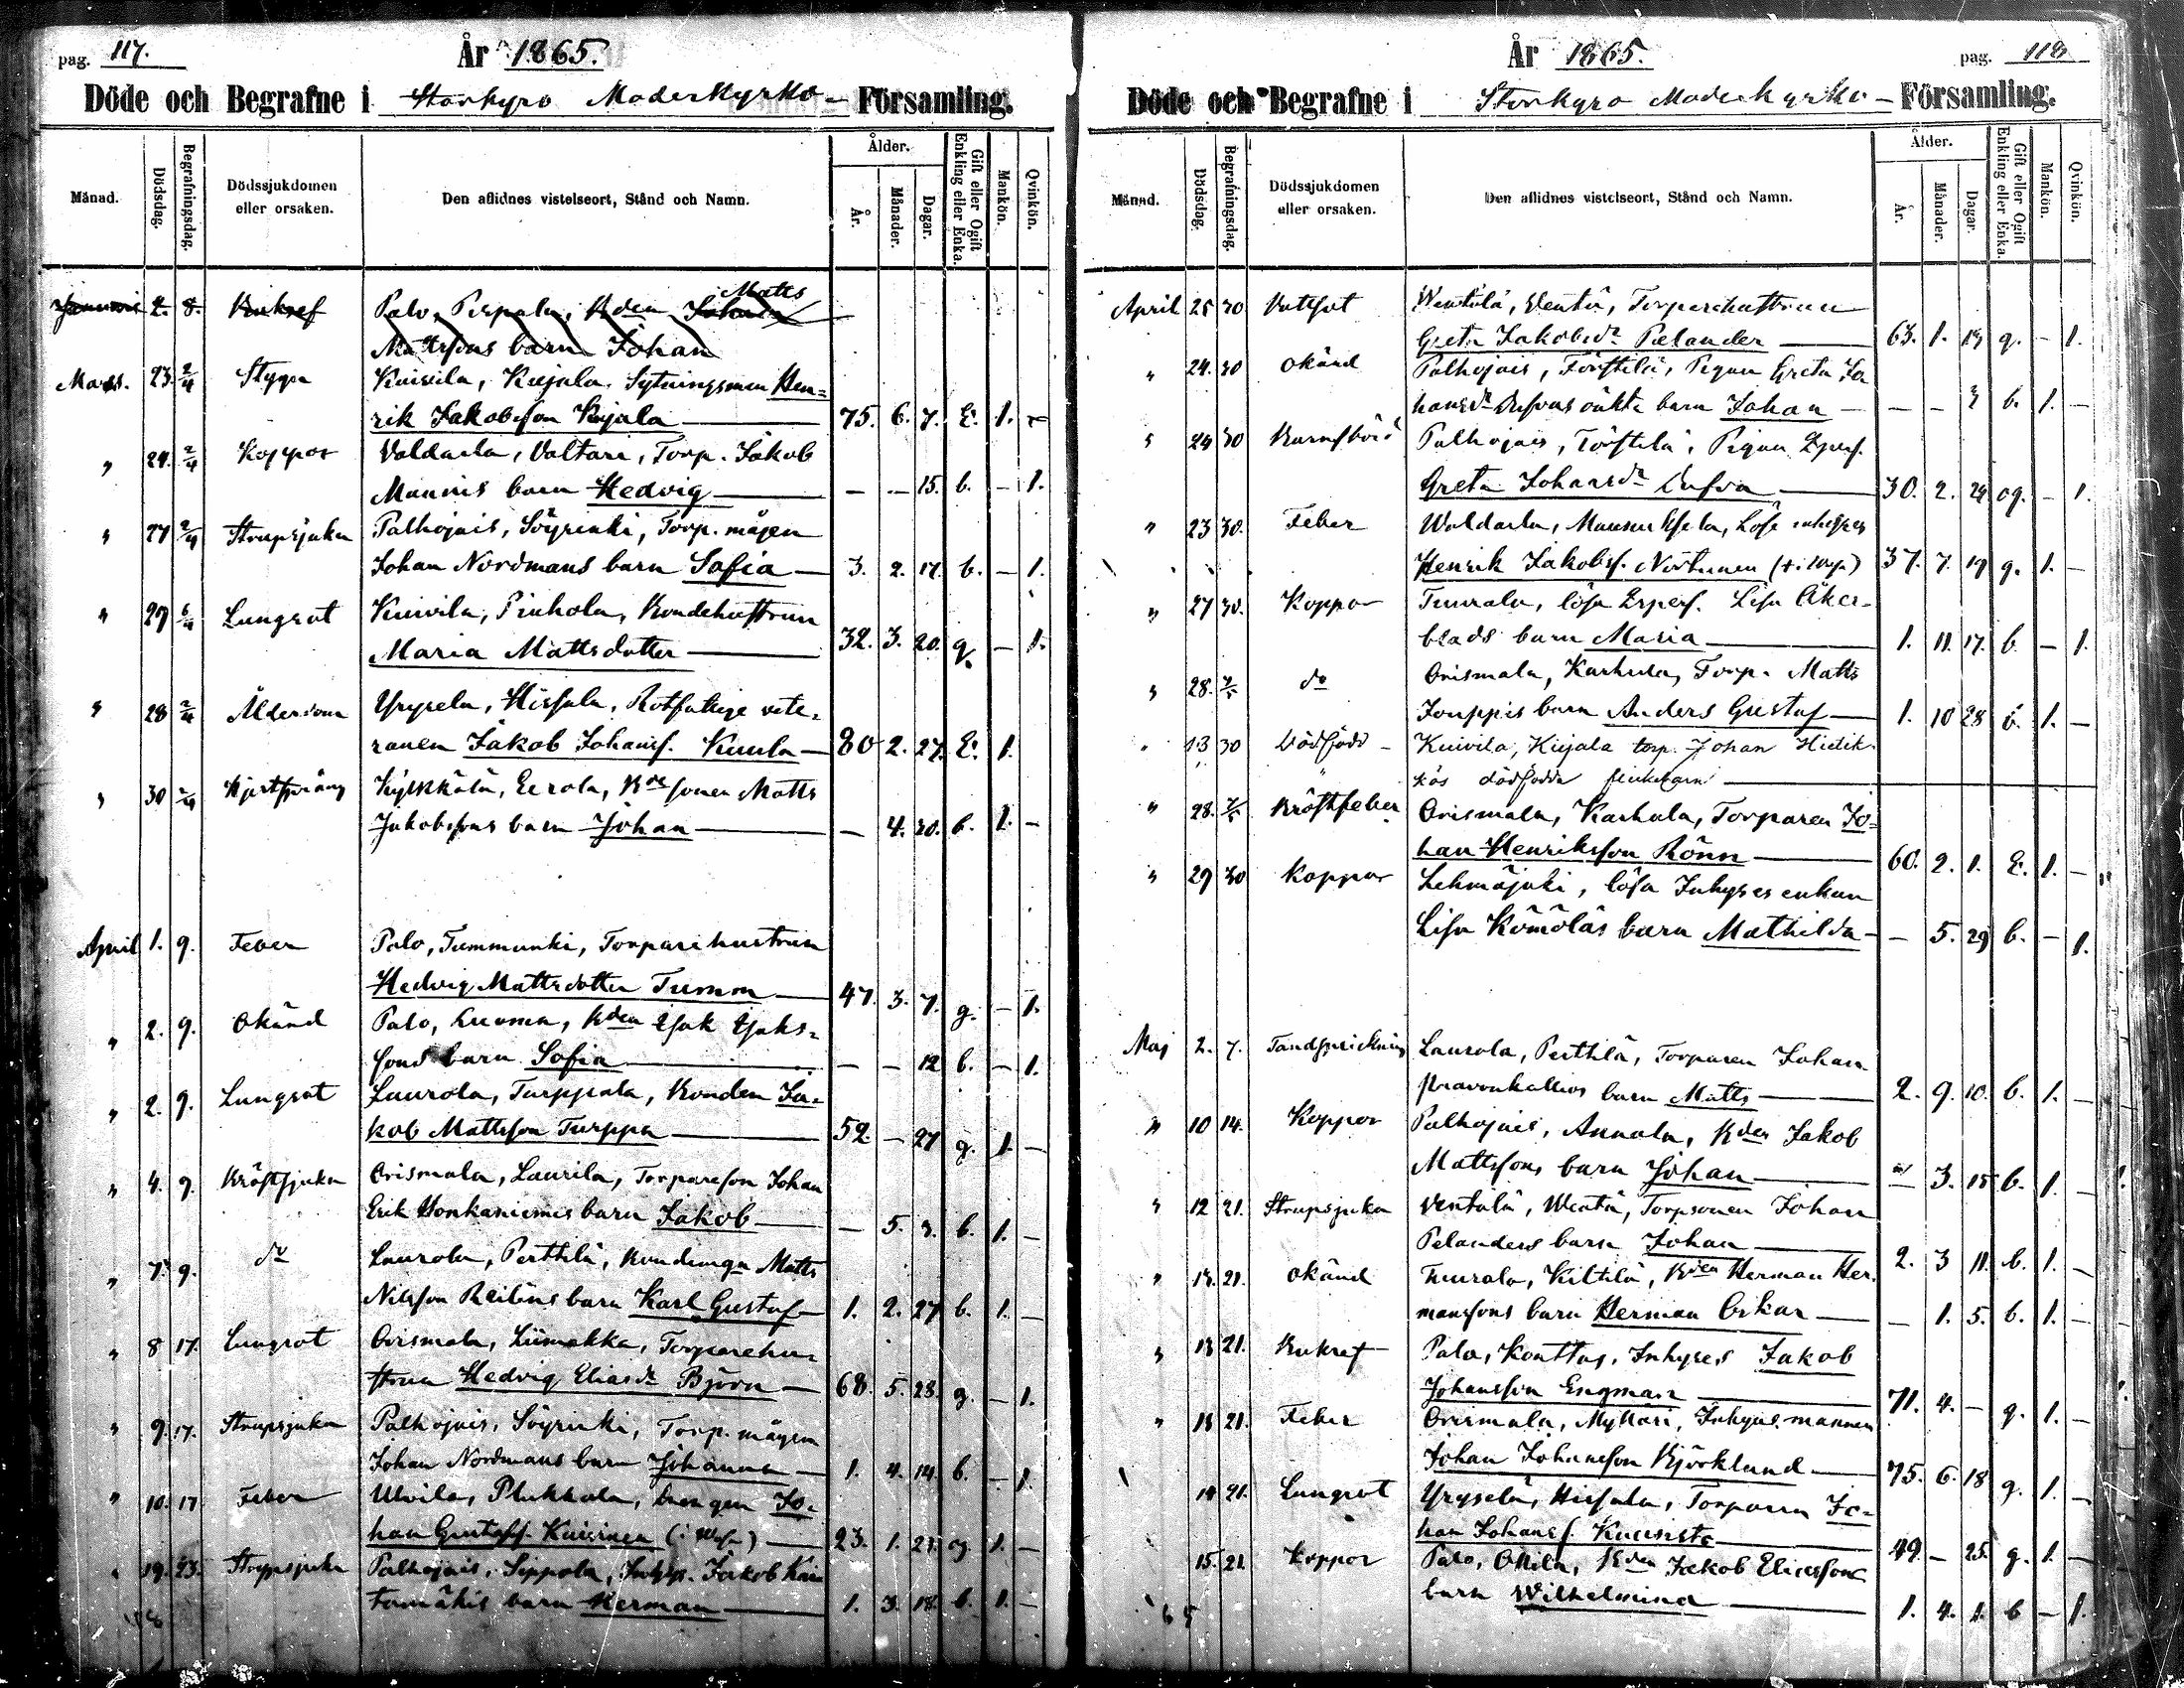 pag. 117.
År 1865.
Döde och Begrafne i Storkyro Moderkyrko- Församling.
Månad.
Dödsdag.
Begrafningsdag.
Dödssjukdomen eller orsaken.
Den aflidnes vistelseort, Stånd och Namn.
Ålder.
År.
Månader.
Dagar.
Gift eller Ogift Enkling eller Enka.
Mankön.
Qvinkön.
Januari 2. 8. Kukref Palo, Perpala, Kden Johan Matts
Mattssons barn Johan
Mars. 23. 2/4 Stygn Kuivila, Kujala, Sytningsman Hen=
rik Jakobsson Kujala 75. 6. 7. E. 1. -
" 24. 2/4 Koppor Valdarla, Valtari, Torp. Jakob
Mannis barn Hedvig - - 15. b. - 1.
" 27 2/4 Strupsjuka Palhojais, Söyrinki, Torp. mågen
Johan Nordmans barn Sofia 3. 2. 17. b. - 1.
" 29 6/4 Lungsot Kuivila, Pinhola, Bondehustrun
Maria Mattsdotter 32. 3. 20. g. - 1.
" 28 2/4 Ålderdom Yrysela, Hissala, Rotfattige vete-
ranen Jakob Johansf. Kuula 80 2. 27. E. 1.
" 30 2/4 Hjertsprång Kylkkälä, Eerola, Kde sonen Matts
Jakobssons barn Johan - 4. 20. b. 1. -
April 1. 9. Feber Palo, Tummunki, Torparehustrun
Hedvig Mattsdotter Tumm 47. 3. 7. g. - 1.
" 2. 9. Okänd Palo, Luoma, Kden Isak Isaks-
sons barn Sofia - - 12 b. - 1.
" 2. 9. Lungsot Laurola, Turppala, Bonden Ja-
kob Mattsson Turppa 52. - 27 g. 1. -
" 4. 9. Bröstsjuka Orismala, Laurila, Torpareson Johan
Erik Honkaniemis barn Jakob - 5. 3. b. 1. -
" 7. 9. do Laurola, Perttilä, Matts
Nilsson barn Karl Gustaf 1. 2. 27 b. 1. -
" 8 17. Lungsot Orismala, Liimakka, Torparehu-
strun Hedvig Eliasdr Björn 68. 5. 23. g. - 1.
" 9. 17. Strupsjuka Palhojais, Söyrinki, Torp. mågen
Johan Nordmans barn Johanna 1. 4. 14. b. - 1.
" 10. 17 Feber Ulvila, Plukkala, drengen Jo-
han Gustafsf. Kuivinen (i Wasa) 23. 1. 21. og 1. -
" 19. 23. Strupsjuka Palhojais, Sippola, Jakob
tamäkis barn Herman 1. 3. 18. b. 1. -
År 1865.
pag. 118
Döde och Begrafne i Storkyro Moderkyrko- Församling.
Månad.
Dödsdag.
Begrafningsdag.
Dödssjukdomen eller orsaken.
Den aflidnes vistelseort, Stånd och Namn.
Ålder.
År.
Månader.
Dagar.
Gift eller Ogift Enkling eller Enka.
Mankön.
Qvinkön.
April 25 30 Vattsot Wentilä, Ventä, Torparehustrun
Greta Jakobsdr Pelander 63. 1. 19 g. - 1.
" 24. 30 Okänd Palhojais, Törstilä, Pigan Greta Jo
hansdr Dufvas oäkta barn Johan - - b. 1. -
" 24 30 Barnsbörd Palhojais, Törstilä, Pigan
Greta Johansdr Dufva 30. 2. 24 og. - 1.
" 23 30. Feber Waldarla, Löse inhyses
Henrik Jakobsf. 37. 7. 19 g. 1. -
" 27 30. Koppor Tuurala, lösa Lisa Åker-
blads barn Maria 1. 11. 17. b. - 1.
" 28. 7/5 do Orismala, Karhula, Torp. Matts
Jouppis barn Anders Gustaf 1. 10 28 b. 1. -
" 13 30 Dödfödd Kuivila, Kujala torp. Johan Hietik-
kös dödfödda flickebarn
" 28. 7/5 Bröstfeber Orismala, Karhula, Torparen Jo=
han Henriksson Rönn 60. 2. 1. E. 1. -
" 29 30 Koppor Lehmäjoki, lösa Inhyses enkan
Lisa Kömöläs barn Mathilda - 5. 29 b. - 1.
Maj 2. 7. Tandsprickning Laurola, Perttilä, Torparen Johan
barn Matts 2. 9. 10. b. 1. -
" 10 14. Koppor Palhojais, Annala, Kden Jakob
Mattssons barn Johan - 3. 15 b. 1. -
" 12 21. Strupsjuka Ventalä, Wentä, Torpsonen Johan
Pelanders barn Johan 2. 3 11. b. 1. -
" 13. 21. Okänd Tuurala, Kiltilä, Kden Herman Her-
manssons barn Herman Oskar - 1. 5. b. 1. -
" 13 21. Kukref Palo, Konttas, Inhyses Jakob
Johansson Engman 71. 4. - g. 1. -
" 13 21. Feber Orismala, Mylläri, Inhyses mannen
Johan Johansson Björklund 75. 6. 18 g. 1. -
14 21. Lungsot Yryselä, Hissala, Torparen Jo-
han Johansf. Kuunsta 49. - 25. g. 1. -
15. 21. Koppor Palo, Ollila, Kden Jakob Eliassons
barn Wilhelmina 1. 4. 1. b - 1.